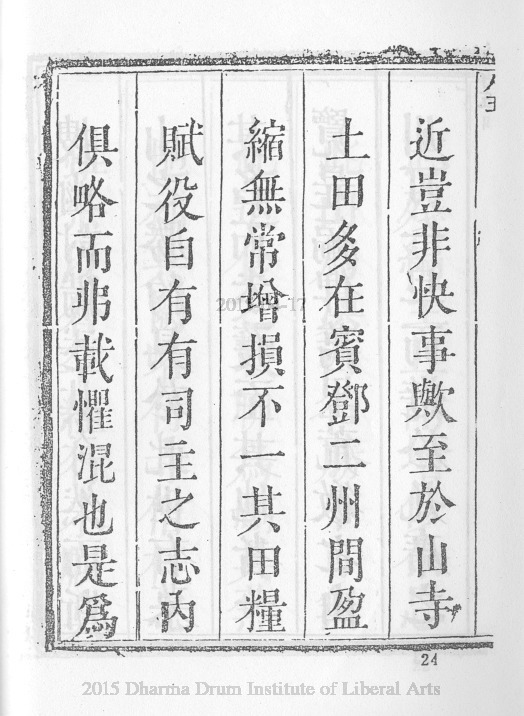 近豈非快事歟至於山寺
土田多在賓鄧二州間盈
縮無常增損不一其田糧
賦役自有有司主之志内
俱略而弗載懼混也是為
24
2015 Dharma Drum Institute of Liberal Arts